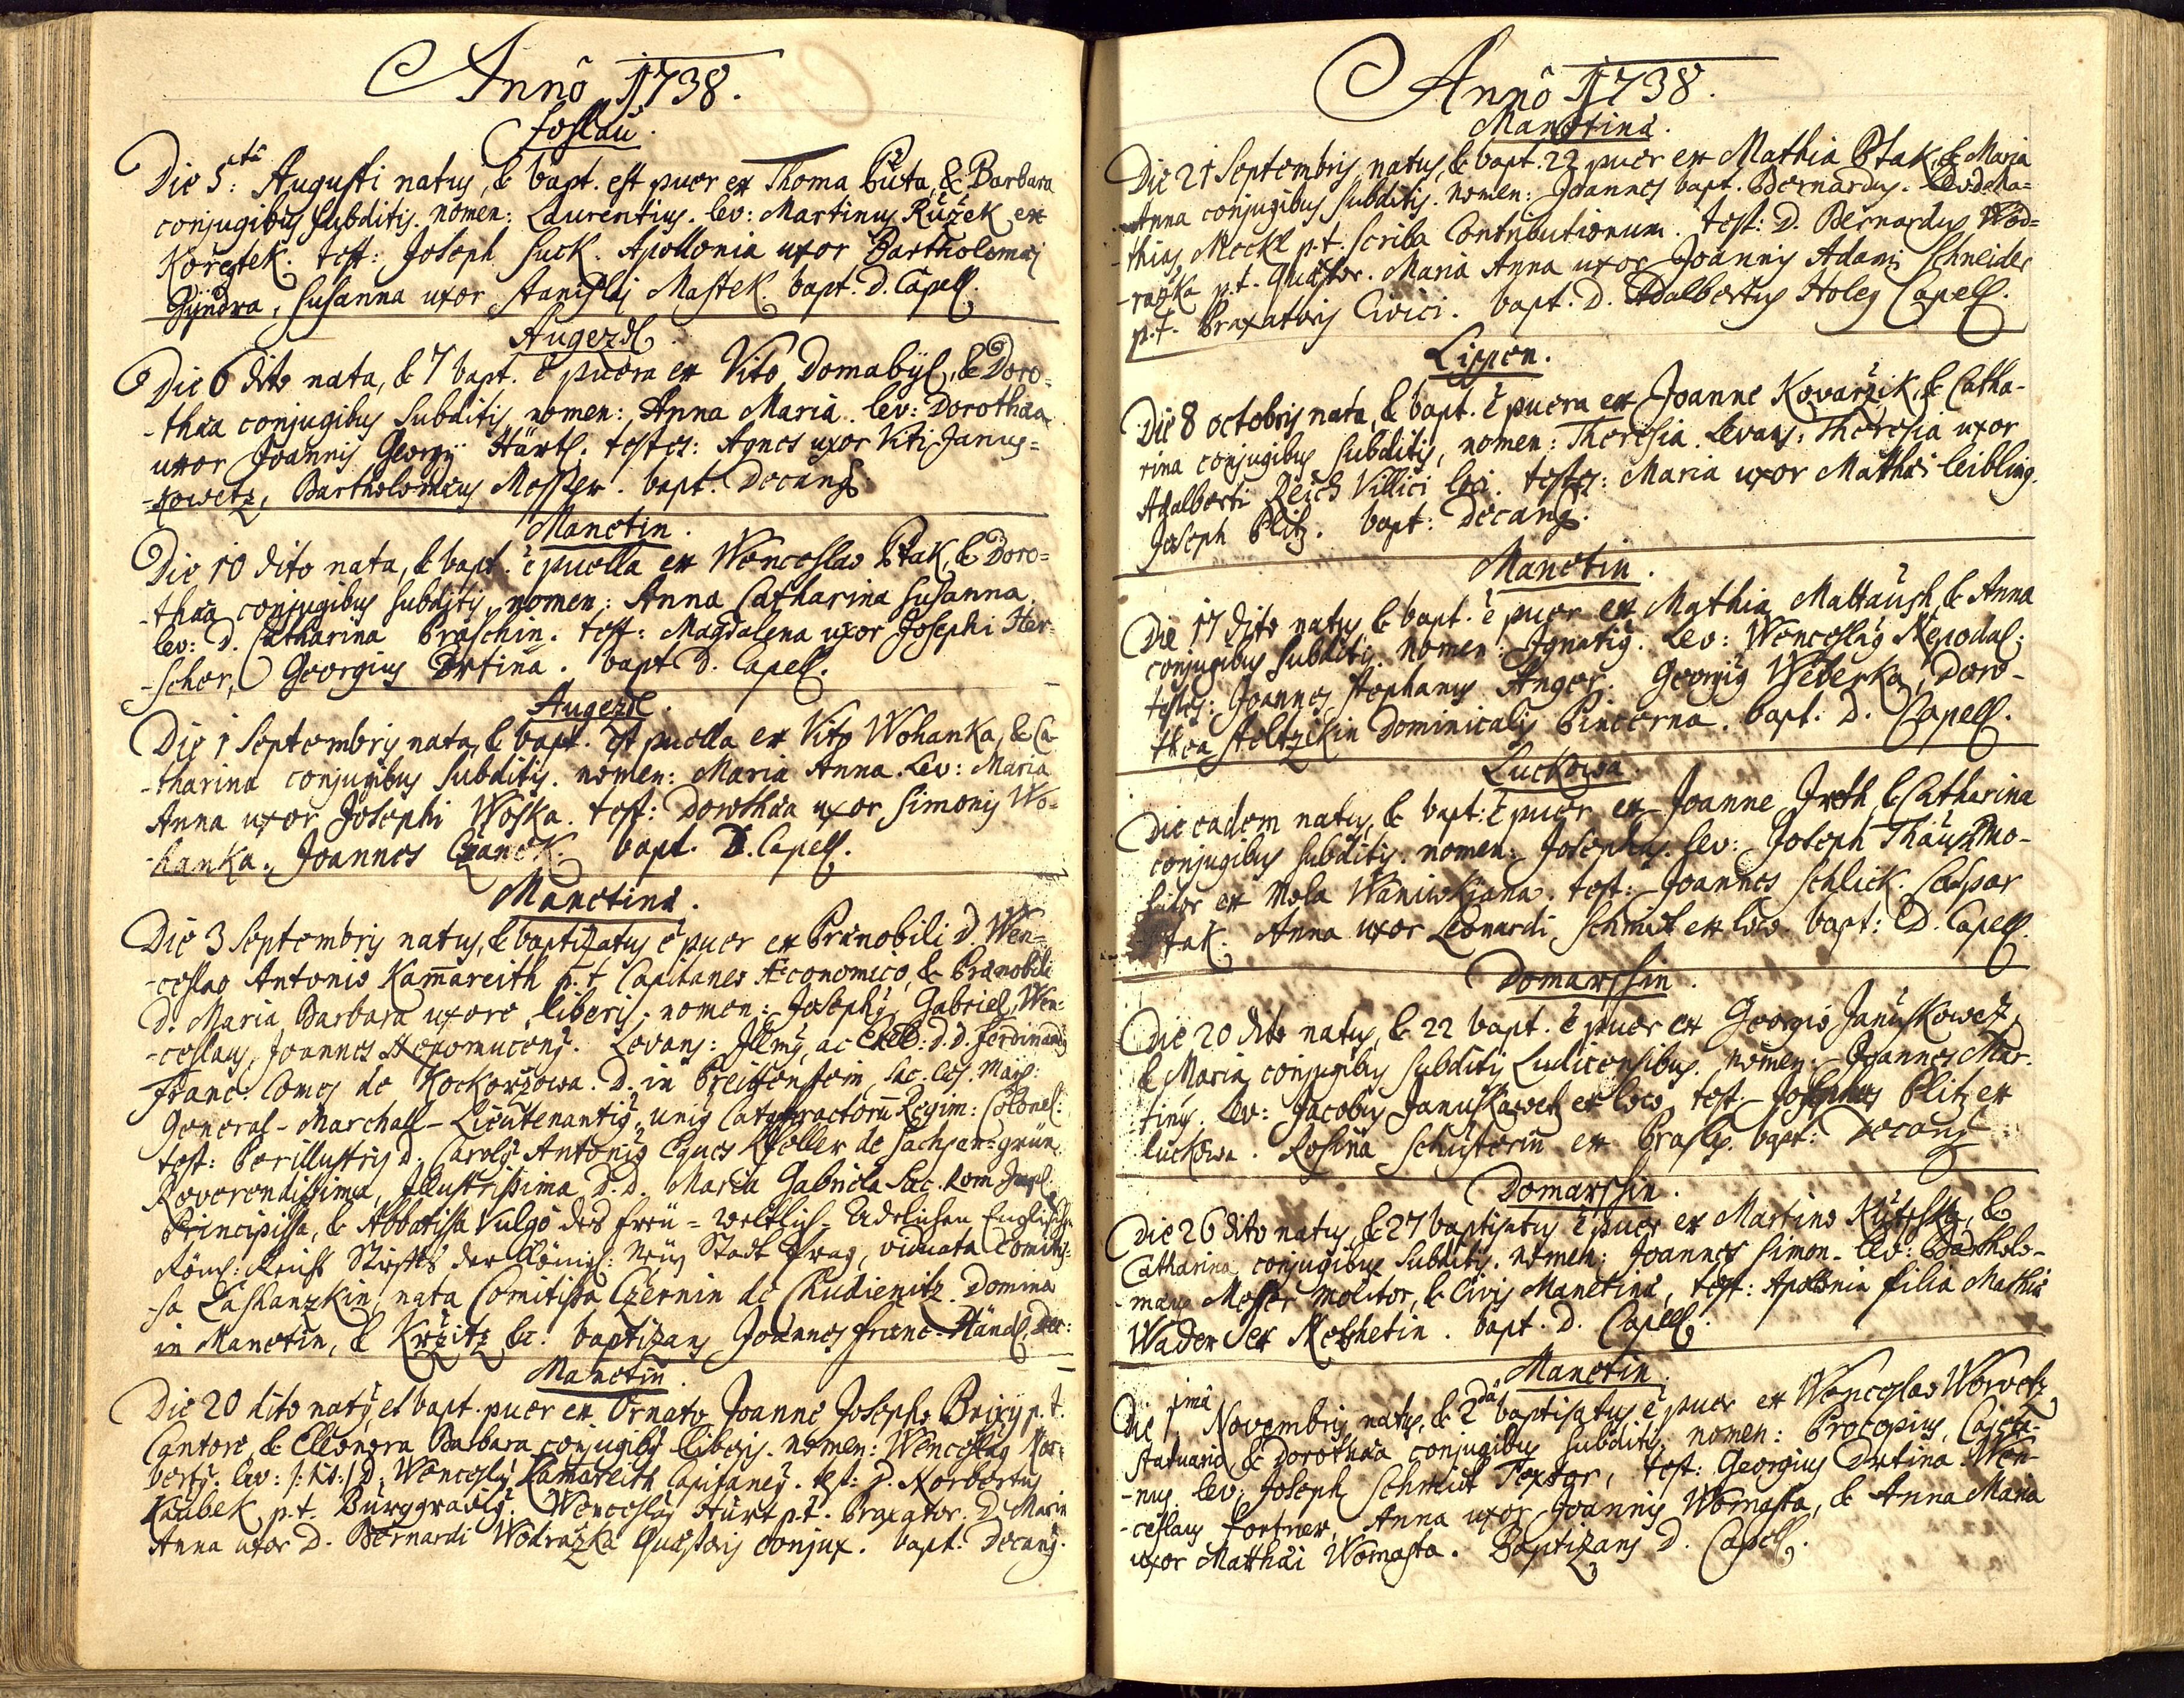 Annô 1738.
Die 5: Augusti natus, & bapt. est puer ex Thoma Buta, & Barbara
conjugibus subditis. nomen: Laurentius. lev: Martinus Růžek ex
test: Joseph Suck. Apollonia uxor Bartholomæj
Gyndra, Susanna uxor Stanislaj Mastek. bapt. D. Capell.
Augezdl.
Die 6 dito nata, & 7 bapt. ē puera ex Vito Domabyl, & Doro=
-thæa conjugibus subditis, nomen: Anna Maria. lev: Dorothæa
uxor Joannis Georgÿ Härtl. testes: Agnes uxor Viti Janus=
-kowetz, Bartholomæus Messer. bapt. Decanus.
Manetin.
Die 10 dito nata, & bapt. ē puella ex Wenceslao Ptak, & Doro=
-thæa conjugibus subditis, nomen: Anna Catharina Susanna.
lev: D. Catharina Praschin. test: Magdalena uxor Josephi Her=
-scher, Georgius Drtina. bapt. D. Capell.
Augezdl.
Die 1 Septembris nata, & bapt. est puella ex Vito Wohanka, & Ca-
-tharina conjugibus subditis. nomen: Maria Anna. Lev: Maria
Anna uxor Josephi Woska. test: Dorothæa uxor Simonis Wo-
-hanka. Joannes Czanek. bapt. D. Capell.
Manetinæ.
Die 3 Septembris natus, & baptizatus ē puer ex Prænobili D. Wen=
-ceslao Antonio Kam̄areith p. t. Capitaneo Æconomico, & Prænobili
D. Maria Barbara uxore, liberis. nomen: Josephy Gabriel, Wen-
-ceslaus, Joannes Nepomuceny. Levans: Illmy, ac Excell: D.D. Ferdinandy
Franc: Comes de Kockoržowa. D. in Preittenstein, Sac. Cæs. Majis:
General-Marchall-Lieutenantis, unis Cataphractorū Regim: Colonel:
test: Perillustris D. Caroly Antonis Eques Moller de Sachsengrün
Reverendissima, Illustrissima D.D. Maria Gabriela Sac. Rom Impl:
Principissa, & Abbatissa Vulgô des freü=weltlich-Adelichen Englisch
Röm: Reichs Stiefts der Königl: Neüs Stadt Prag, viduata Comitis-
-sa Lashanzkin, nata Comitissa Czernin de Chudienitz. Domina
in Manetin, & Kržitz &c. baptizans Joannes Franc. Händl, Dec:
Manetin.
Die 20 dito naty, et bapt. puer ex Ornato Joanne Josepho Brixy p. t.
Cantore, & Elleonora Barbara conjugiby liberis. nomen: Wenceslaq Nor-
berty. lev: D. Wencesly Kamareith Capitaney. test: D. Norbertus
Kaubek p. t. Burggravig. Wenceslaq Hürt p.t. Praxator. D. Maria
Anna uxor D. Bernardi Wodražka Quæstoris conjux. bapt: Decang.
Annô 1738.
Manetinæ.
Die 21 Septembris natus, & bapt. 22 puer ex Mathia Ptak, & Maria
Anna conjugibus subditis. nomen: Joannes bapt. Bernardus. Lev: Ma=
-thias Meckl p.t. Scriba Contributionum. test: D. Bernardus Wod=
-ražka p.t. Quæstor. Maria Anna uxor Joannis Adami Schneider
p.t. Praxatoris Civici. bapt: D. Adalbertus Holey Capell.
Lippen.
Die 8 octobris nata, & bapt. ē puera ex Joanne Kovaržik, & Catha-
rina conjugibus subditis, nomen: Theresia. Levans: Theresia uxor
Adalberti Reich Villici loci. testes: Maria uxor Matthæi Leibling.
Joseph Plitz. bapt: Decang.
Manetin.
Die 17 dito natus & bapt. ē puer ex Mathia Mattaush, & Anna
conjugibus subditis. nomen: Ignatig. Lev: Wenceslaq Nepodal;
testes: Joannes Stephanus Anger. Georgig Weberka, Doro-
thea Stoltzikin Dominicalis Pincerna. bapt. D. Capell.
Luckowa.
Die eadem natus, & bapt: ē puer ex Joanne Irth & Catharina
conjugibus subditis. nomen: Josephus. Lev: Joseph Mo-
-litor ex Mola Waniwkiana. test: Joannes Schlick. Caspar
Ptak. Anna uxor Leonardi Schmidt ex loco. bapt: D. Capell.
Domarshin.
Die 20 dito natus, & 22 bapt. ē puer ex Georgio Januskowetz,
& Maria conjugibus subditis Ludicensibus. nomen: Joannes Mar-
tiny. Lev: Jacobus Januskowetz ex loco test. Josephus Plitz ex
Luckowa. Rosina Schusterin ex bapt: Decang
Domarshin.
Die 26 dito natus, & 27 baptisatus ē puer ex Martino &
Catharina conjugibus subditis. nomen: Joannes Simon. Lev: Bartholo-
-mæus Messer Molitor, & Civis Manetinæ, test: Apolonia filia Mathiæ
Wader ex Nebshetin. bapt. D. Capell.
Manetin.
Die 1ma Novembris natus, & 2da baptisatus ē puer ex Wenceslao Worwetz
Statuario & Dorothæa conjugibus subditis nomen: Procopius, Cajeta-
-nus. lev: Joseph Schmidt Textor, test: Georgius Drtina. Wen-
-ceslaus Fortner, Anna uxor Joannis Womasta, & Anna Maria
uxor Matthæi Womasta. Baptizans D. Capell.